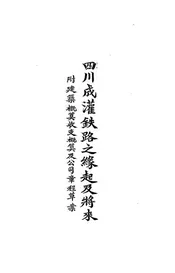 四川成灌鉄路之緣起及將來
附建築概算收支概算及公司章程草案